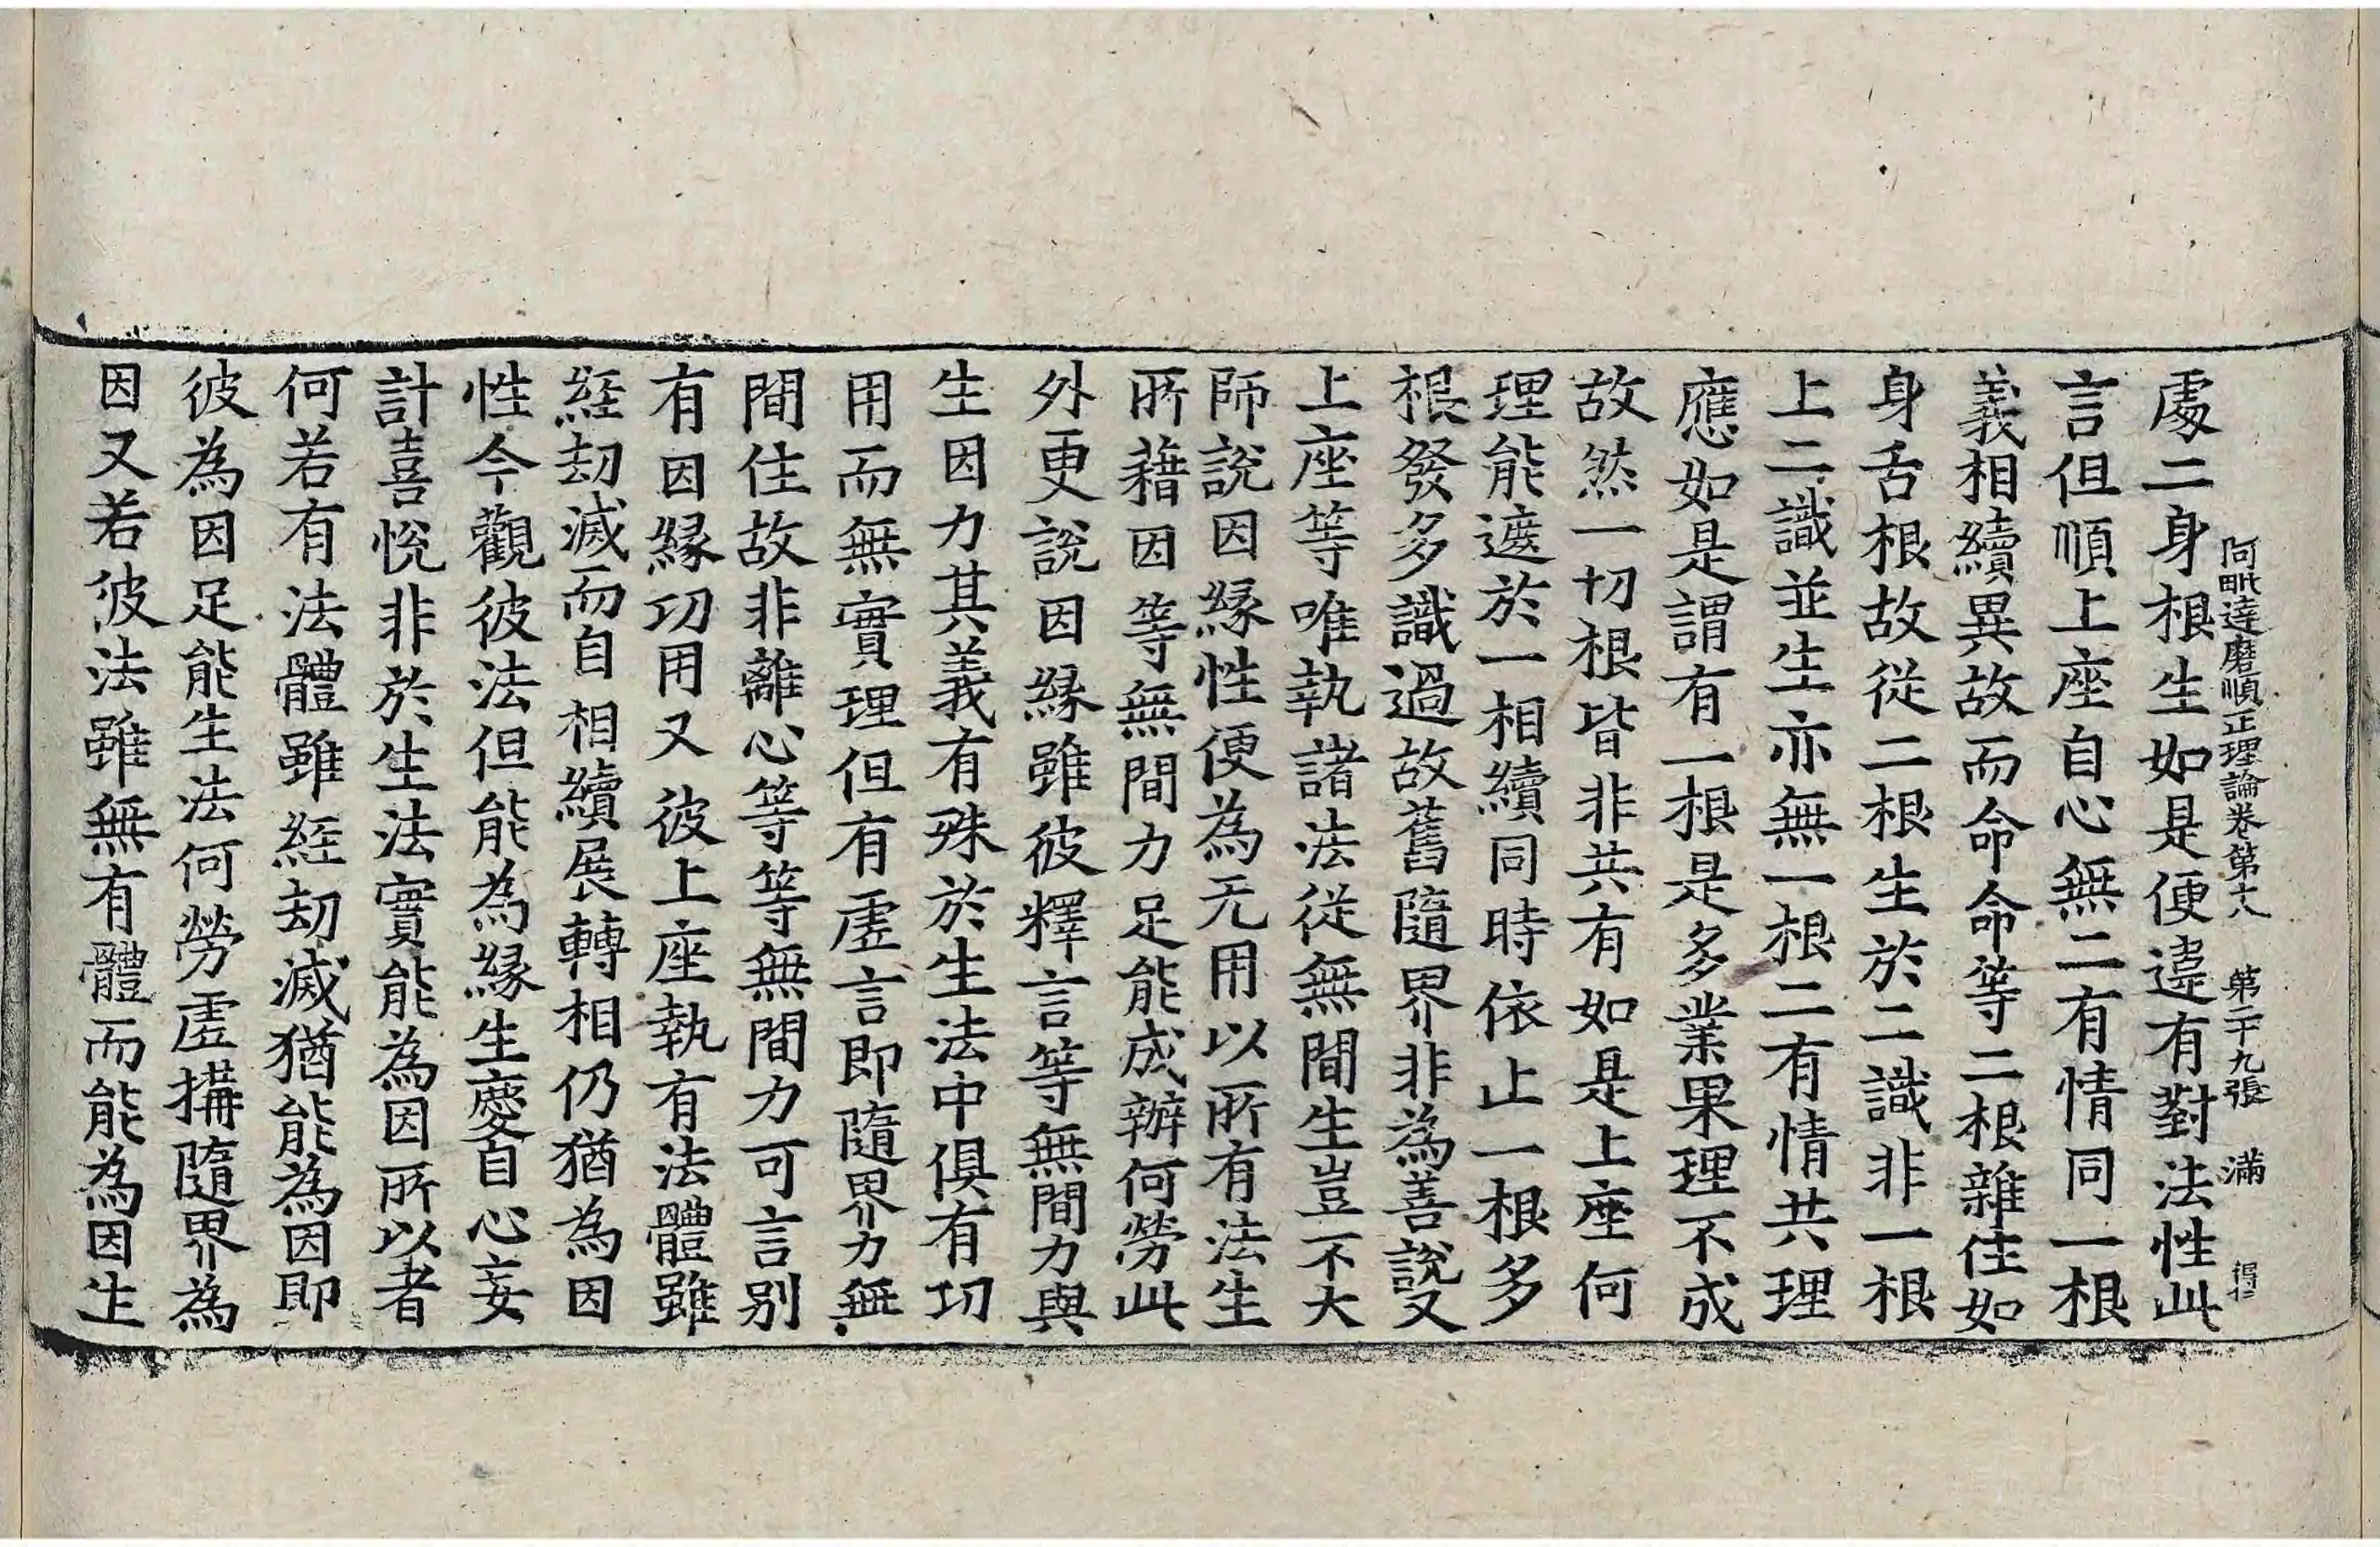 阿毗達磨順正理論卷第十八 第二十九張 滿
處二身根生如是便違有對法性此
言但順上座自心無二有情同一根
義相續異故而命命等二根雜住如
身舌根故從二根生於二識非一根
上二識並生亦無一根二有情共理
應如是謂有一根是多業果理不成
故然一切根皆非共有如是上座何
理能遮於一相續同時依止一根多
根發多識過故舊隨界非為善說又
上座等唯執諸法從無間生豈不大
師說因緣性便為无用以所有法生
所藉因等無間力足能成辦何勞此
外更說因緣雖彼釋言等無間力與
生因力其義有殊於生法中俱有功
用而無實理但有虛言即隨界力無
間住故非離心等等無間力可言別
有因緣功用又彼上座執有法體雖
經劫滅而自相續展轉相仍猶為因
性今觀彼法但能為緣生慶自心妄
計喜悅非於生法實能為因所以者
何若有法體雖經劫滅猶能為因即
彼為因足能生法何勞虛搆隨界為
因又若彼法雖無有體而能為因生